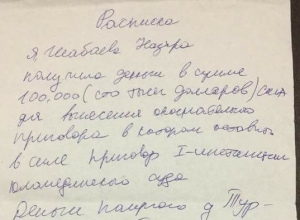 Расписка
Я, Жабаева Назира
получила деньги в сумме
100,000 (сто тысяч долларов) сша
для вынесения окончательного
приговора в котором оставить
в силе приговор I-инстанции
юридического суда
Деньги получила у Тур-